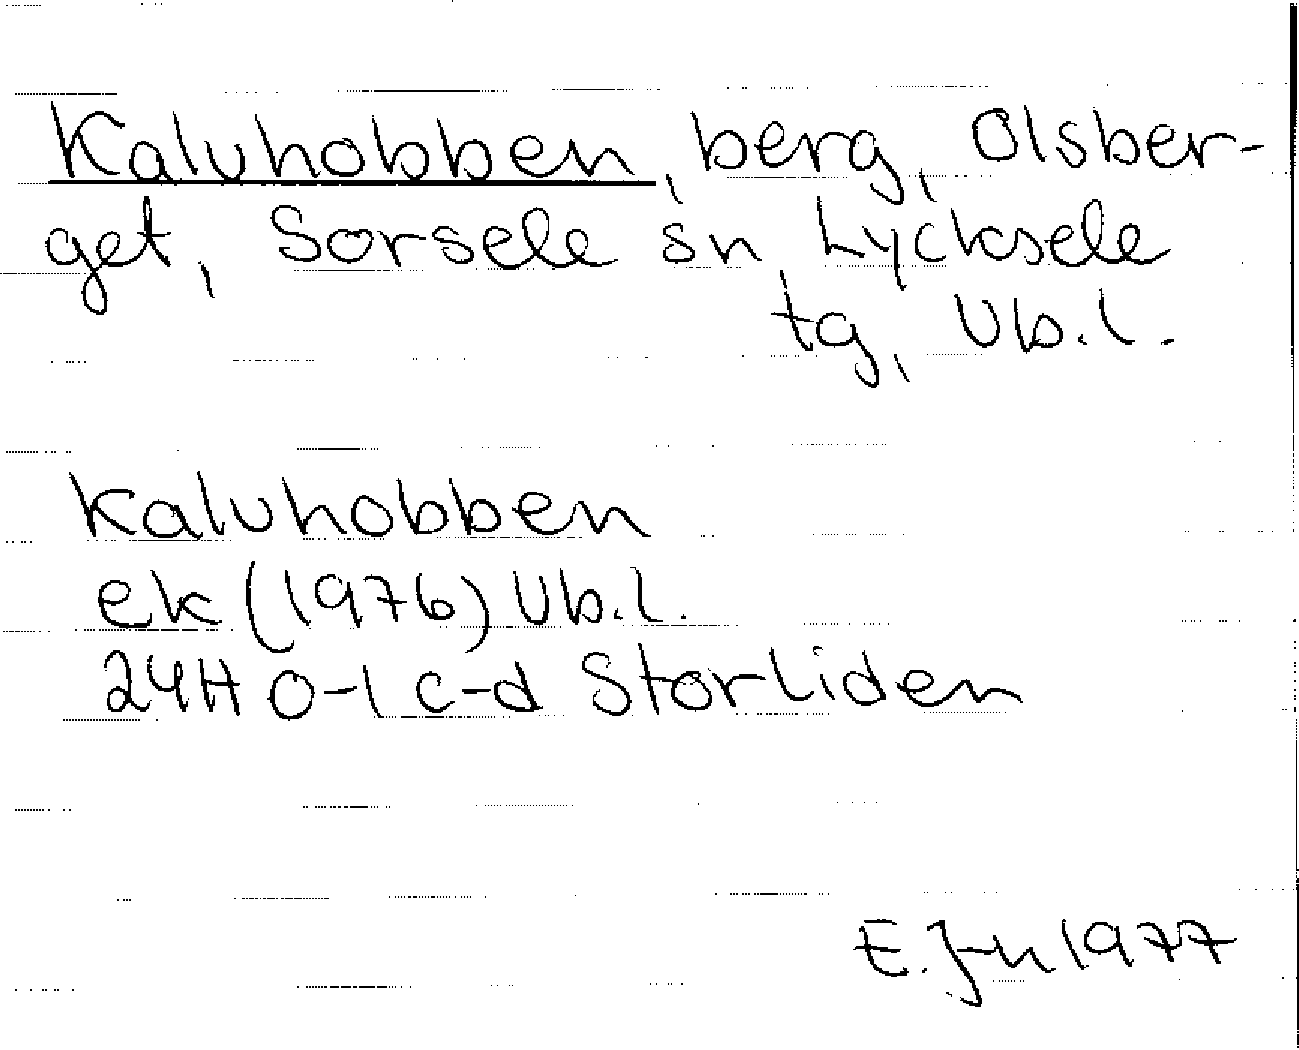 Kalvhobben, berg, Olsber-
get, Sorsele sn, Lycksele
tg, Vb.l.
Kalvhobben
ek (1976) Vb.l.
24H 0-1 c-d Storliden
E. J-n 1977